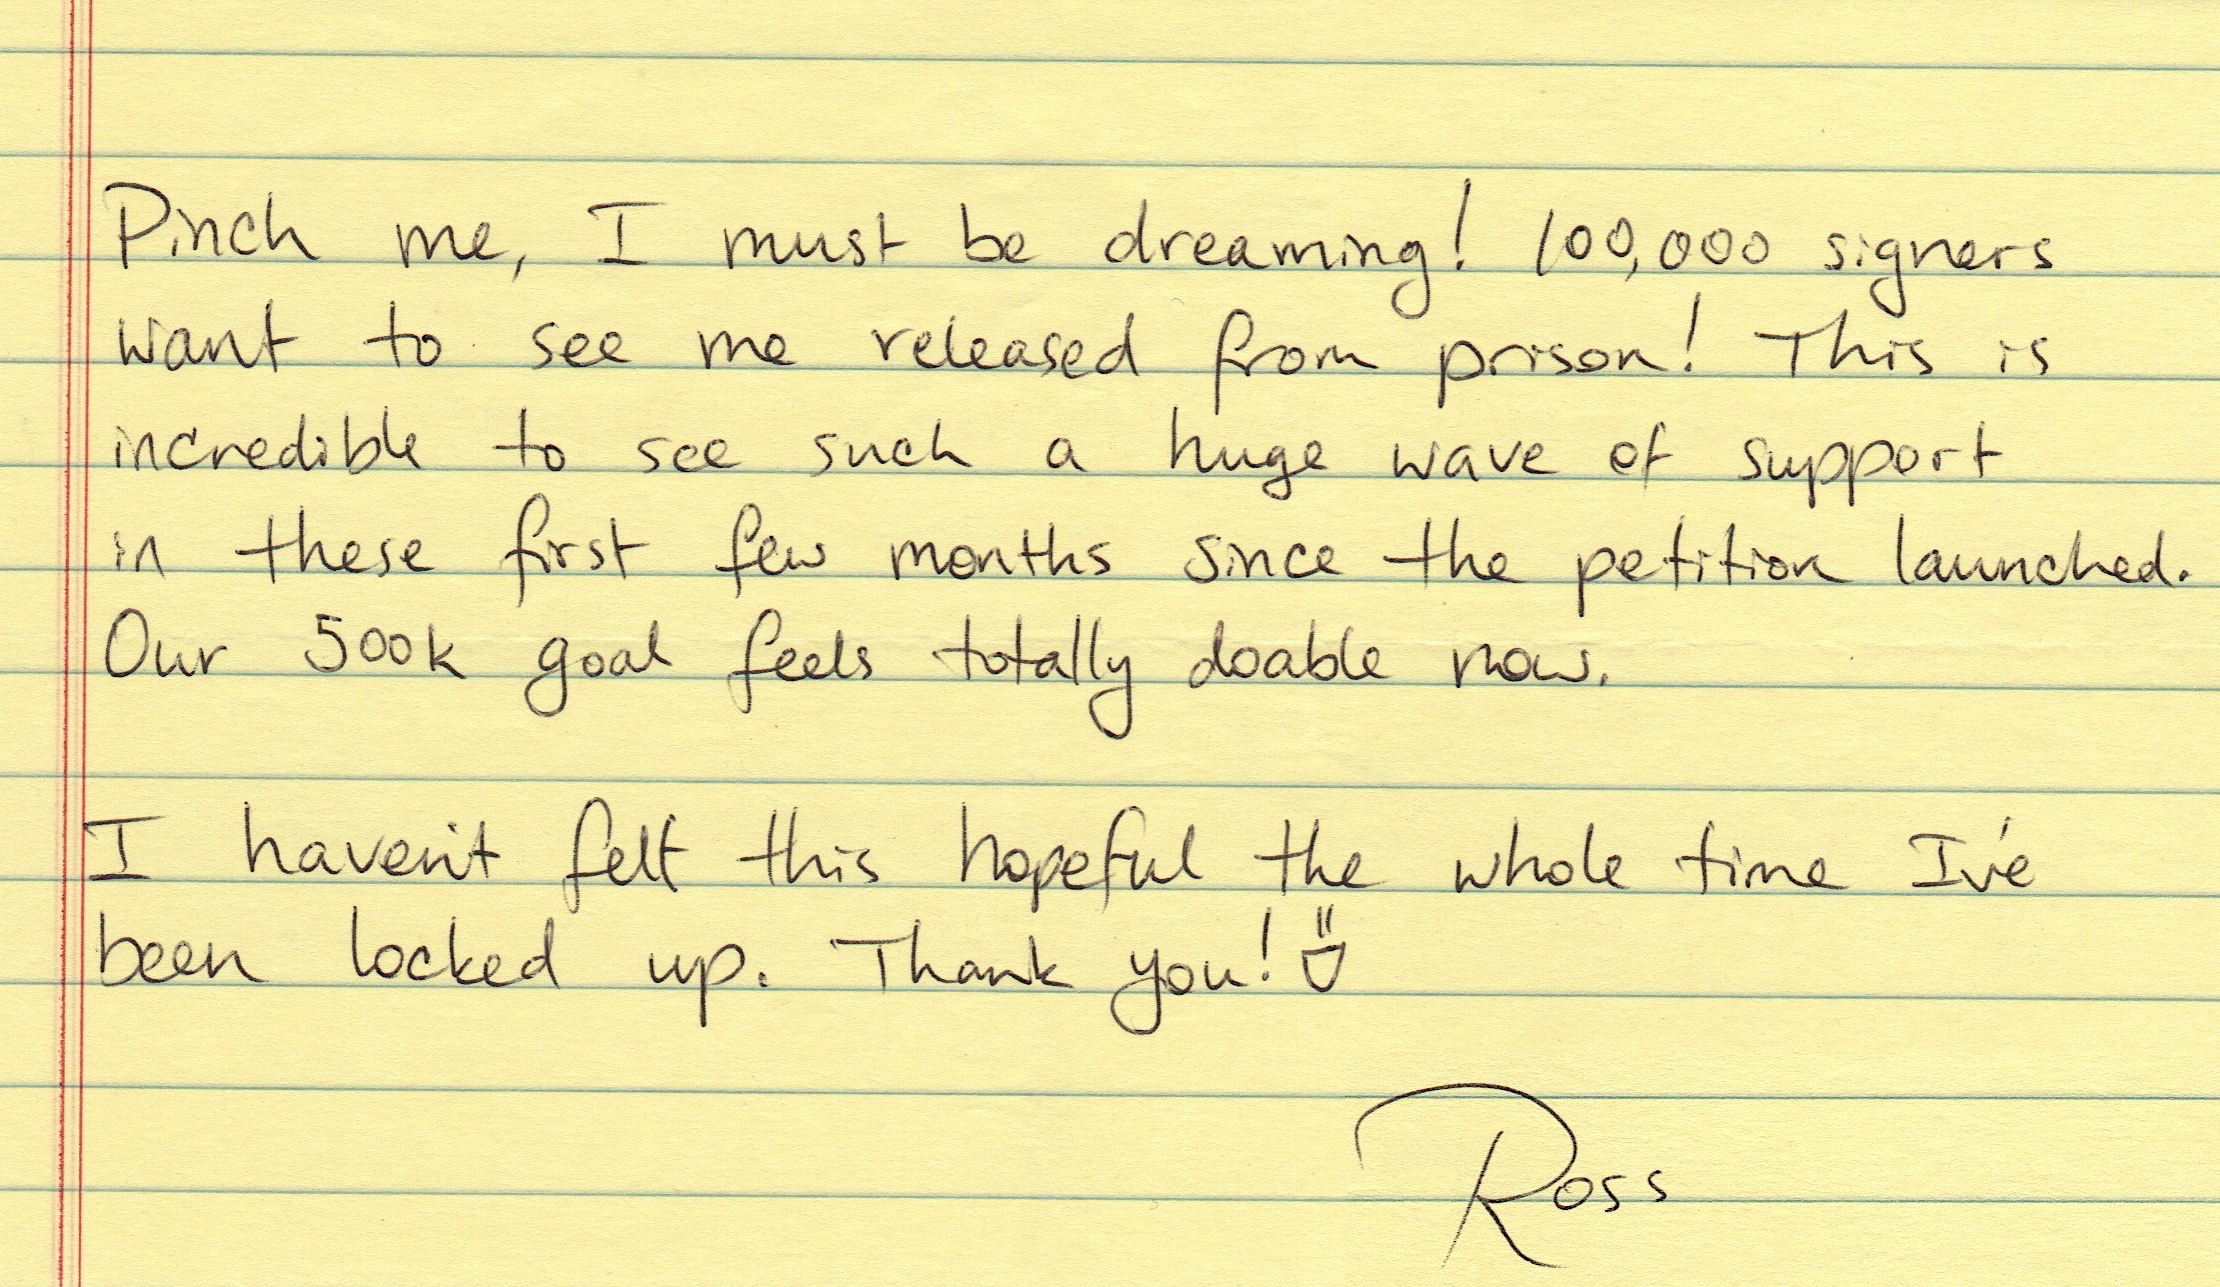 Pinch me, I must be dreaming! 100,000 signers
want to see me released from prison! This is
incredible to see such a huge wave of support
in these first few months since the petition launched.
Our 500k goal feels totally doable now.
I haven't felt this hopeful the whole time I've
been locked up. Thank you! :)
Ross